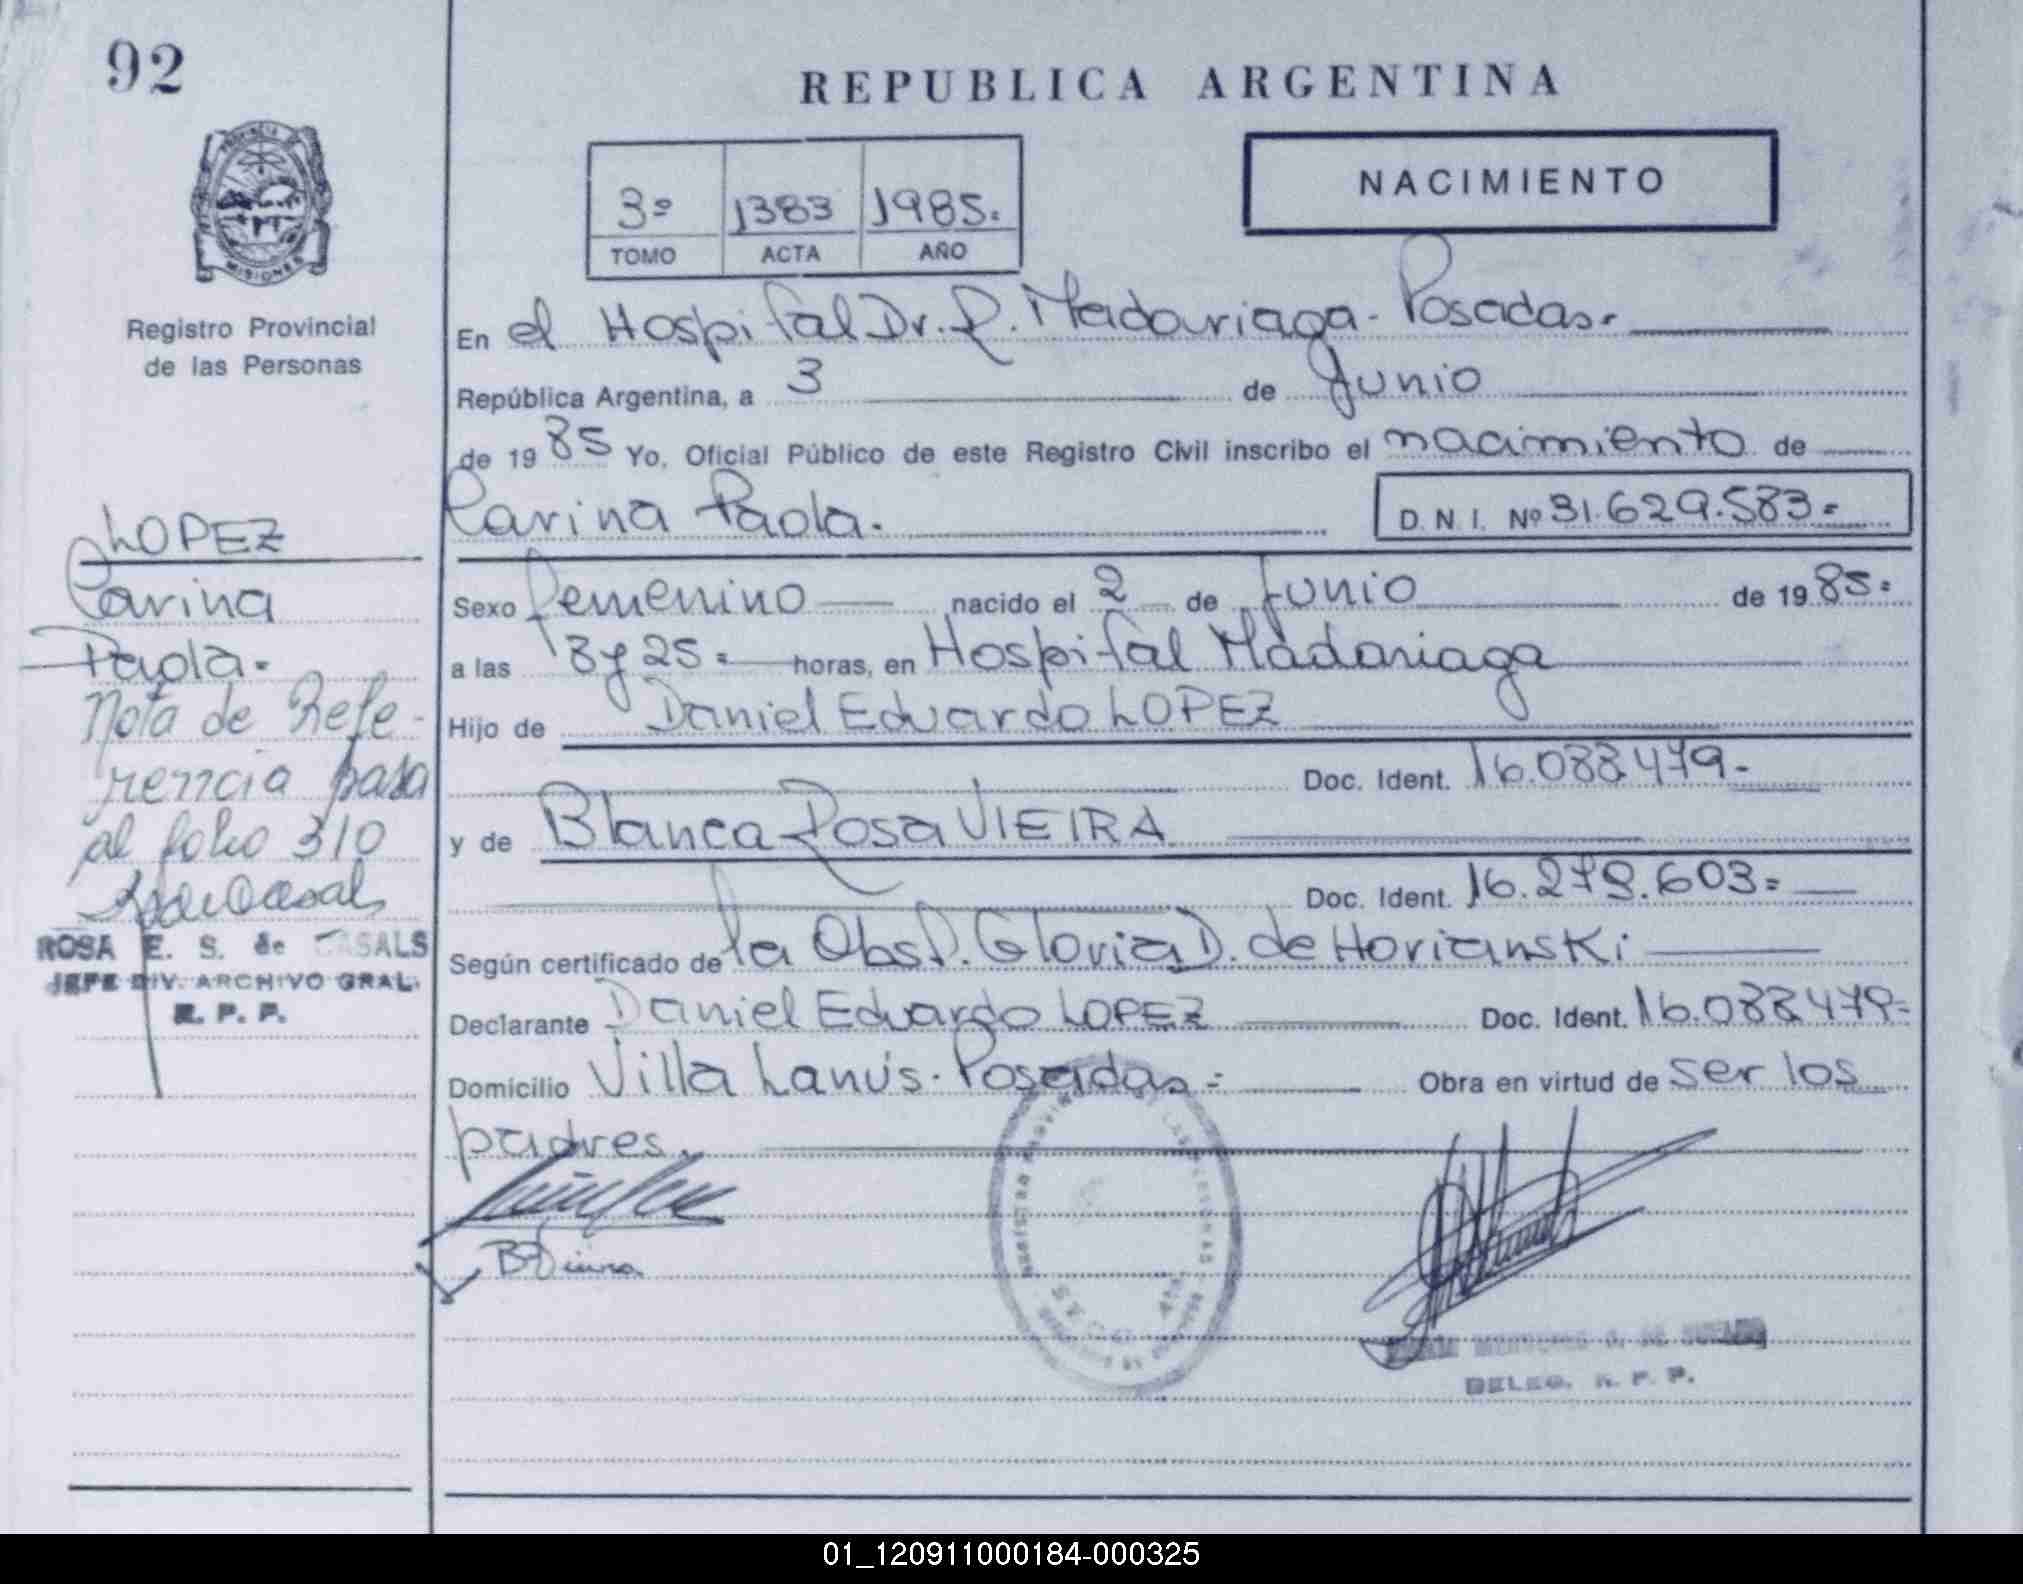 92
REPUBLICA ARGENTINA
PROVINCIA
MISIONES
Registro Provincial
de las Personas
3º 1383 1985.
TOMO ACTA AÑO
NACIMIENTO
En el Hospital Dr. R. Madariaga - Posadas.
República Argentina, a 3 de Junio
de 1985 Yo, Oficial Público de este Registro Civil inscribo el nacimiento de
Carina Paola. D. N. I. Nº 31.629.583=
LOPEZ
Carina
Paola.
Nota de Refe-
rencia pasa
al folio 310
ROSA E. S. de CASALS
JEFE DIV. ARCHIVO GRAL.
R. P. P.
Sexo femenino nacido el 2 de Junio de 1985=
a las 3 y 25= horas, en Hospital Madariaga
Hijo de Daniel Eduardo LOPEZ
Doc. Ident. 16.088.479-
y de Blanca Rosa VIEIRA
Doc. Ident. 16.279.603=
Según certificado de la Obst. Gloria D. de Horianski
Declarante Daniel Eduardo LOPEZ Doc. Ident. 16.088.479-
Domicilio Villa Lanús - Posadas = Obra en virtud de ser los
padres.
DELEG. R. P. P.
01_120911000184-000325